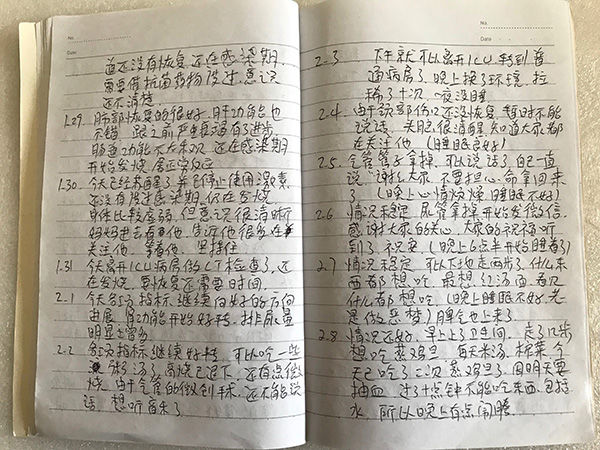 No.
Date
道还没有恢复还在感染期.
需要借抗菌药物度过,意识
还不清楚
1.29. 肺部恢复的很好,肝功能也
不错 跟之前严重是有了进步,
肠道功能不太乐观,还在感染期
开始发烧属正常反应
1.30. 今天已经苏醒了并已停止使用激素
还没有度过感染期,仍在发烧
身体比较虚弱,但意识很清晰
妈妈进去看他,告诉他很多在
关注他 等着他 坚持住
1.31 今天离开ICU病房做CT检查了,还
在发烧,要恢复还需要时间.
2-1 今天各项指标继续向好的方向
发展 肾功能开始好转,排尿量
明显增多
2-2 各项指标继续好转,可以吃一些
粥了汤了,高烧已退下,还有点低
烧,由于气管的微创手术,还不能说
话,想听音乐了
No.
Date
2-3 大年就可以离开ICU转到普
通病房了,晚上换了环境,拉
稀了十次,一夜没睡
2.4. 由于颈部伤口还没恢复,暂时不能
说话,头脑很清醒,知道大家都
在关注他 (睡眠良好)
2.5. 气管管子拿掉,可以说话了,自己一直
说"谢谢大家,不要担心,命拿回来
了 (晚上心情烦燥,睡眠不好)
2.6 情况稳定,尿管拿掉开始发微信,
感谢大家的关心,大家的祝福听
到了,祝安 (晚上6点半开始睡着了)
2.7 情况稳定,可以下地走两步了,什么东
西都想吃,最想红汤面,看见
什么都想吃 (晚上睡眠不好,老
是做恶梦) 脾气也上来了
2.8 情况还好,早上上了卫生间,走了几步
想吃蒸鸡旦,每天米汤,榨菜,今
天已吃了二次蒸鸡旦了.因明天要
抽血,过了十点钟不能吃东西,包括
水,所以晚上有点闹腾